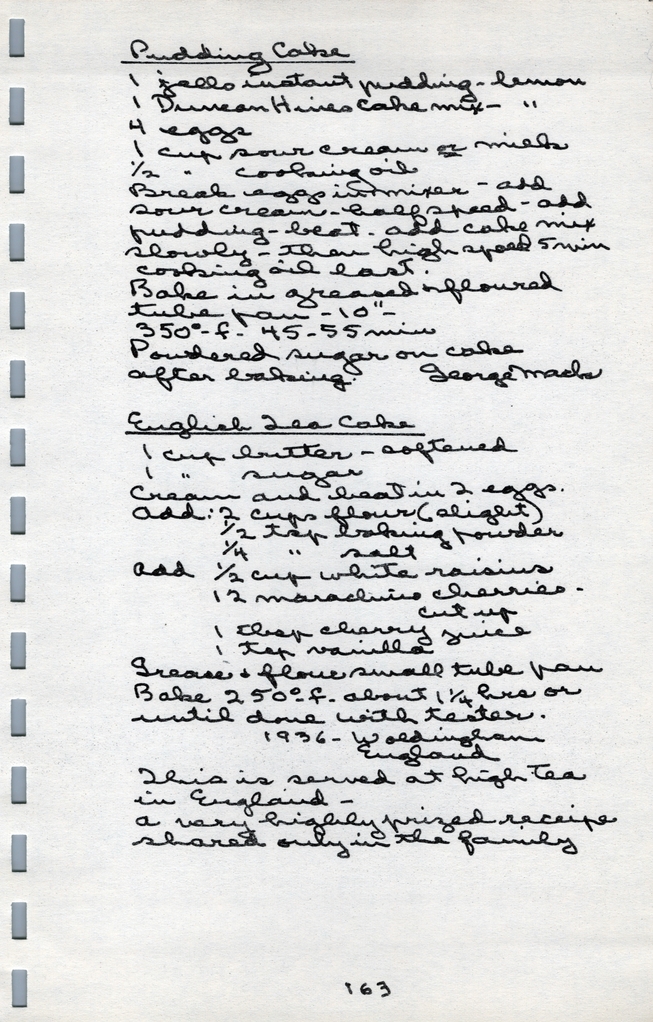 Pudding Cake
1 jello instant pudding - lemon
1 Duncan Hines cake mix - "
4 eggs
1 cup sour cream or milk
1/2 " cooking oil
Break eggs in mixer - add
sour cream - half speed - add
pudding - beat. add cake mix
slowly - then high speed 5 min
cooking oil last.
Bake in greased & floured
tube pan - 10" -
350° f. 45-55 min
Powdered sugar on cake
after baking. George Macks
English Tea Cake
1 cup butter - softened
1 " sugar
Cream and beat in 2 eggs.
add: 2 cups flour (slight)
1/2 tsp baking powder
1/4 " salt
add 1/2 cup white raisins
12 marachino cherries -
cut up
1 tbsp cherry juice
1 tsp vanilla
Grease & flour small tube pan
Bake 250° f. about 1 1/4 hrs or
until done with tester.
1936 - Woldingham
England
This is served at high tea
in England -
a very highly prized receipe
shared only in the family
163